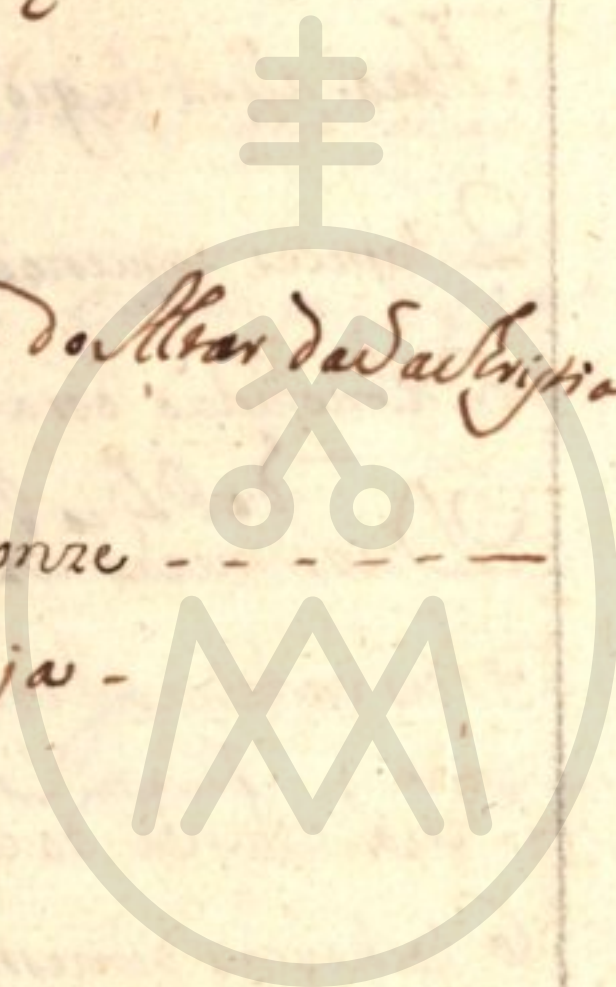 do Altar da Sacristia
onze - - - - - - -
ja -